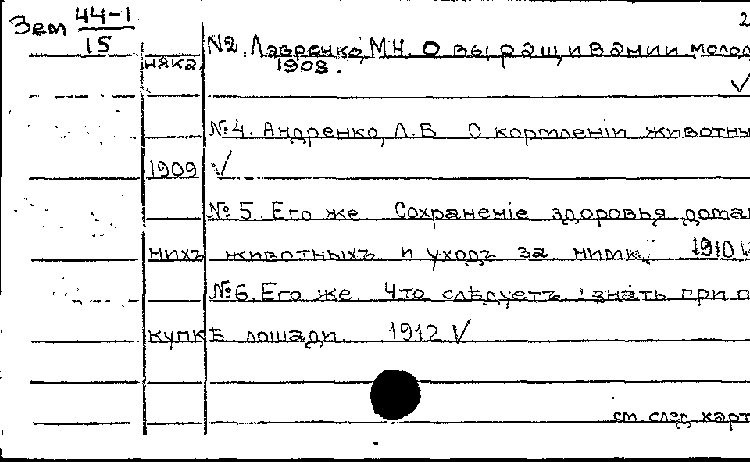 Зем 44-1
15
2
№2. Лавренко, М.Н. О выращивании молод
няка, 1908. √
№4. Андренко, Л.Е О кормленіи животны
1909 √
№5. Его же Сохраненіе здоровья домаш
нихъ животныхъ и уходъ за ними. 1910 √
№6. Его же. Что слѣдуетъ знать при по
купкѣ лошади. 1912 √
см. след. карт